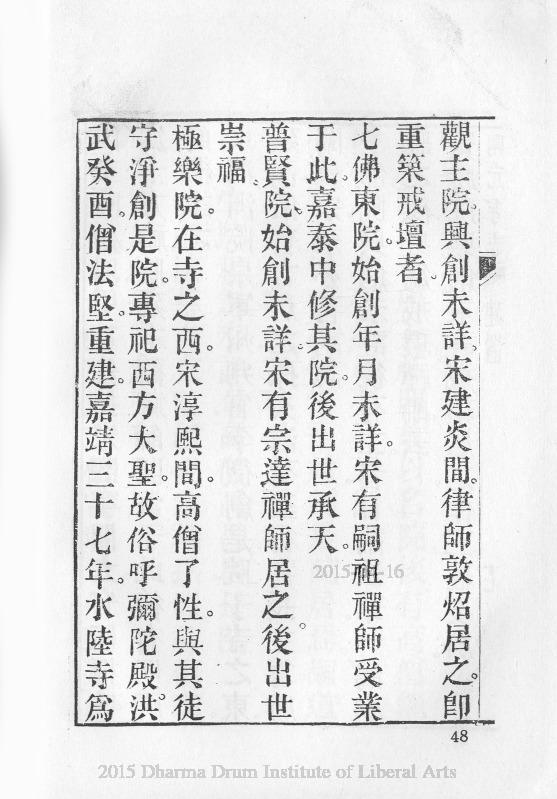 觀主院。興創未詳、宋建炎間。律師敦炤居之。卽
重築戒壇者。
七佛東院。始創年月未詳。宋有嗣祖禪師受業
于此。嘉泰中修其院。後出世承天。
普賢院、始創未詳、宋有宗達禪師居之。後出世
崇福、
極樂院。在寺之西。宋淳熙間。高僧了性。與其徒
守淨創是院。專祀西方大聖。故俗呼彌陀殿。洪
武癸酉。僧法堅。重建。嘉靖三十七年。水陸寺爲
48
2015-16
2015 Dharma Drum Institute of Liberal Arts